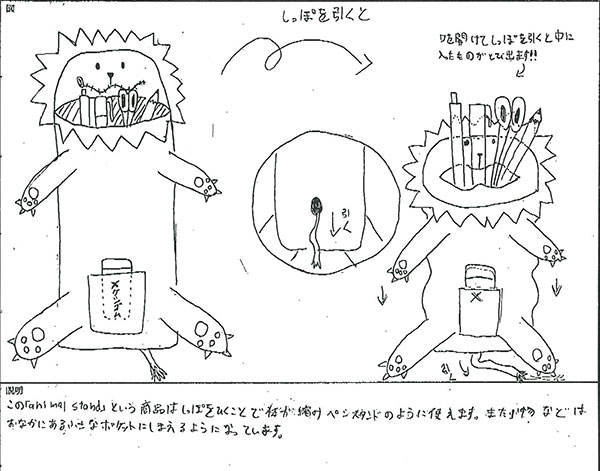 図
しっぽを引くと
口を開けてしっぽを引くと中に
入れたものがとび出ます!!
引く
ケシゴム
引く
説明
この「animal stand」という商品はしっぽをひくことで体が縮みペンスタンドのように使えます。また小物などは
おなかにある小さなポケットにしまえるようになっています。